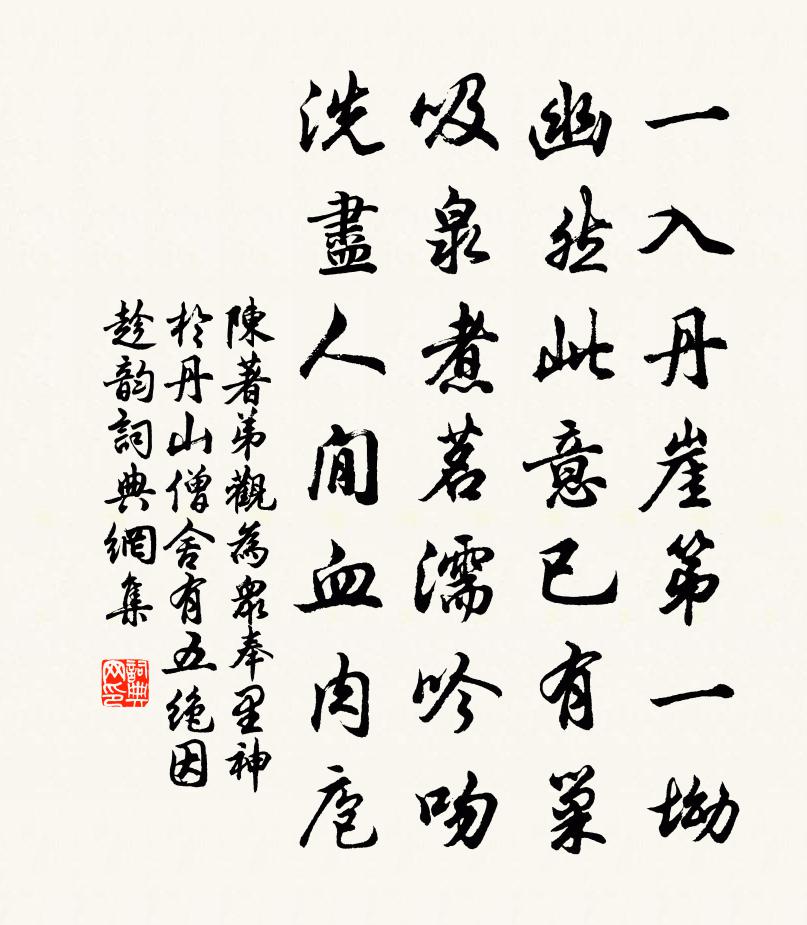 一入丹崖第一坳
幽然此意已有巢
吸泉煮茗濡吟吻
洗盡人間血肉庖
陳著弟觀為衆奉里神
於丹山僧舍有五絶因
趁韵詞典網集
詞典网印